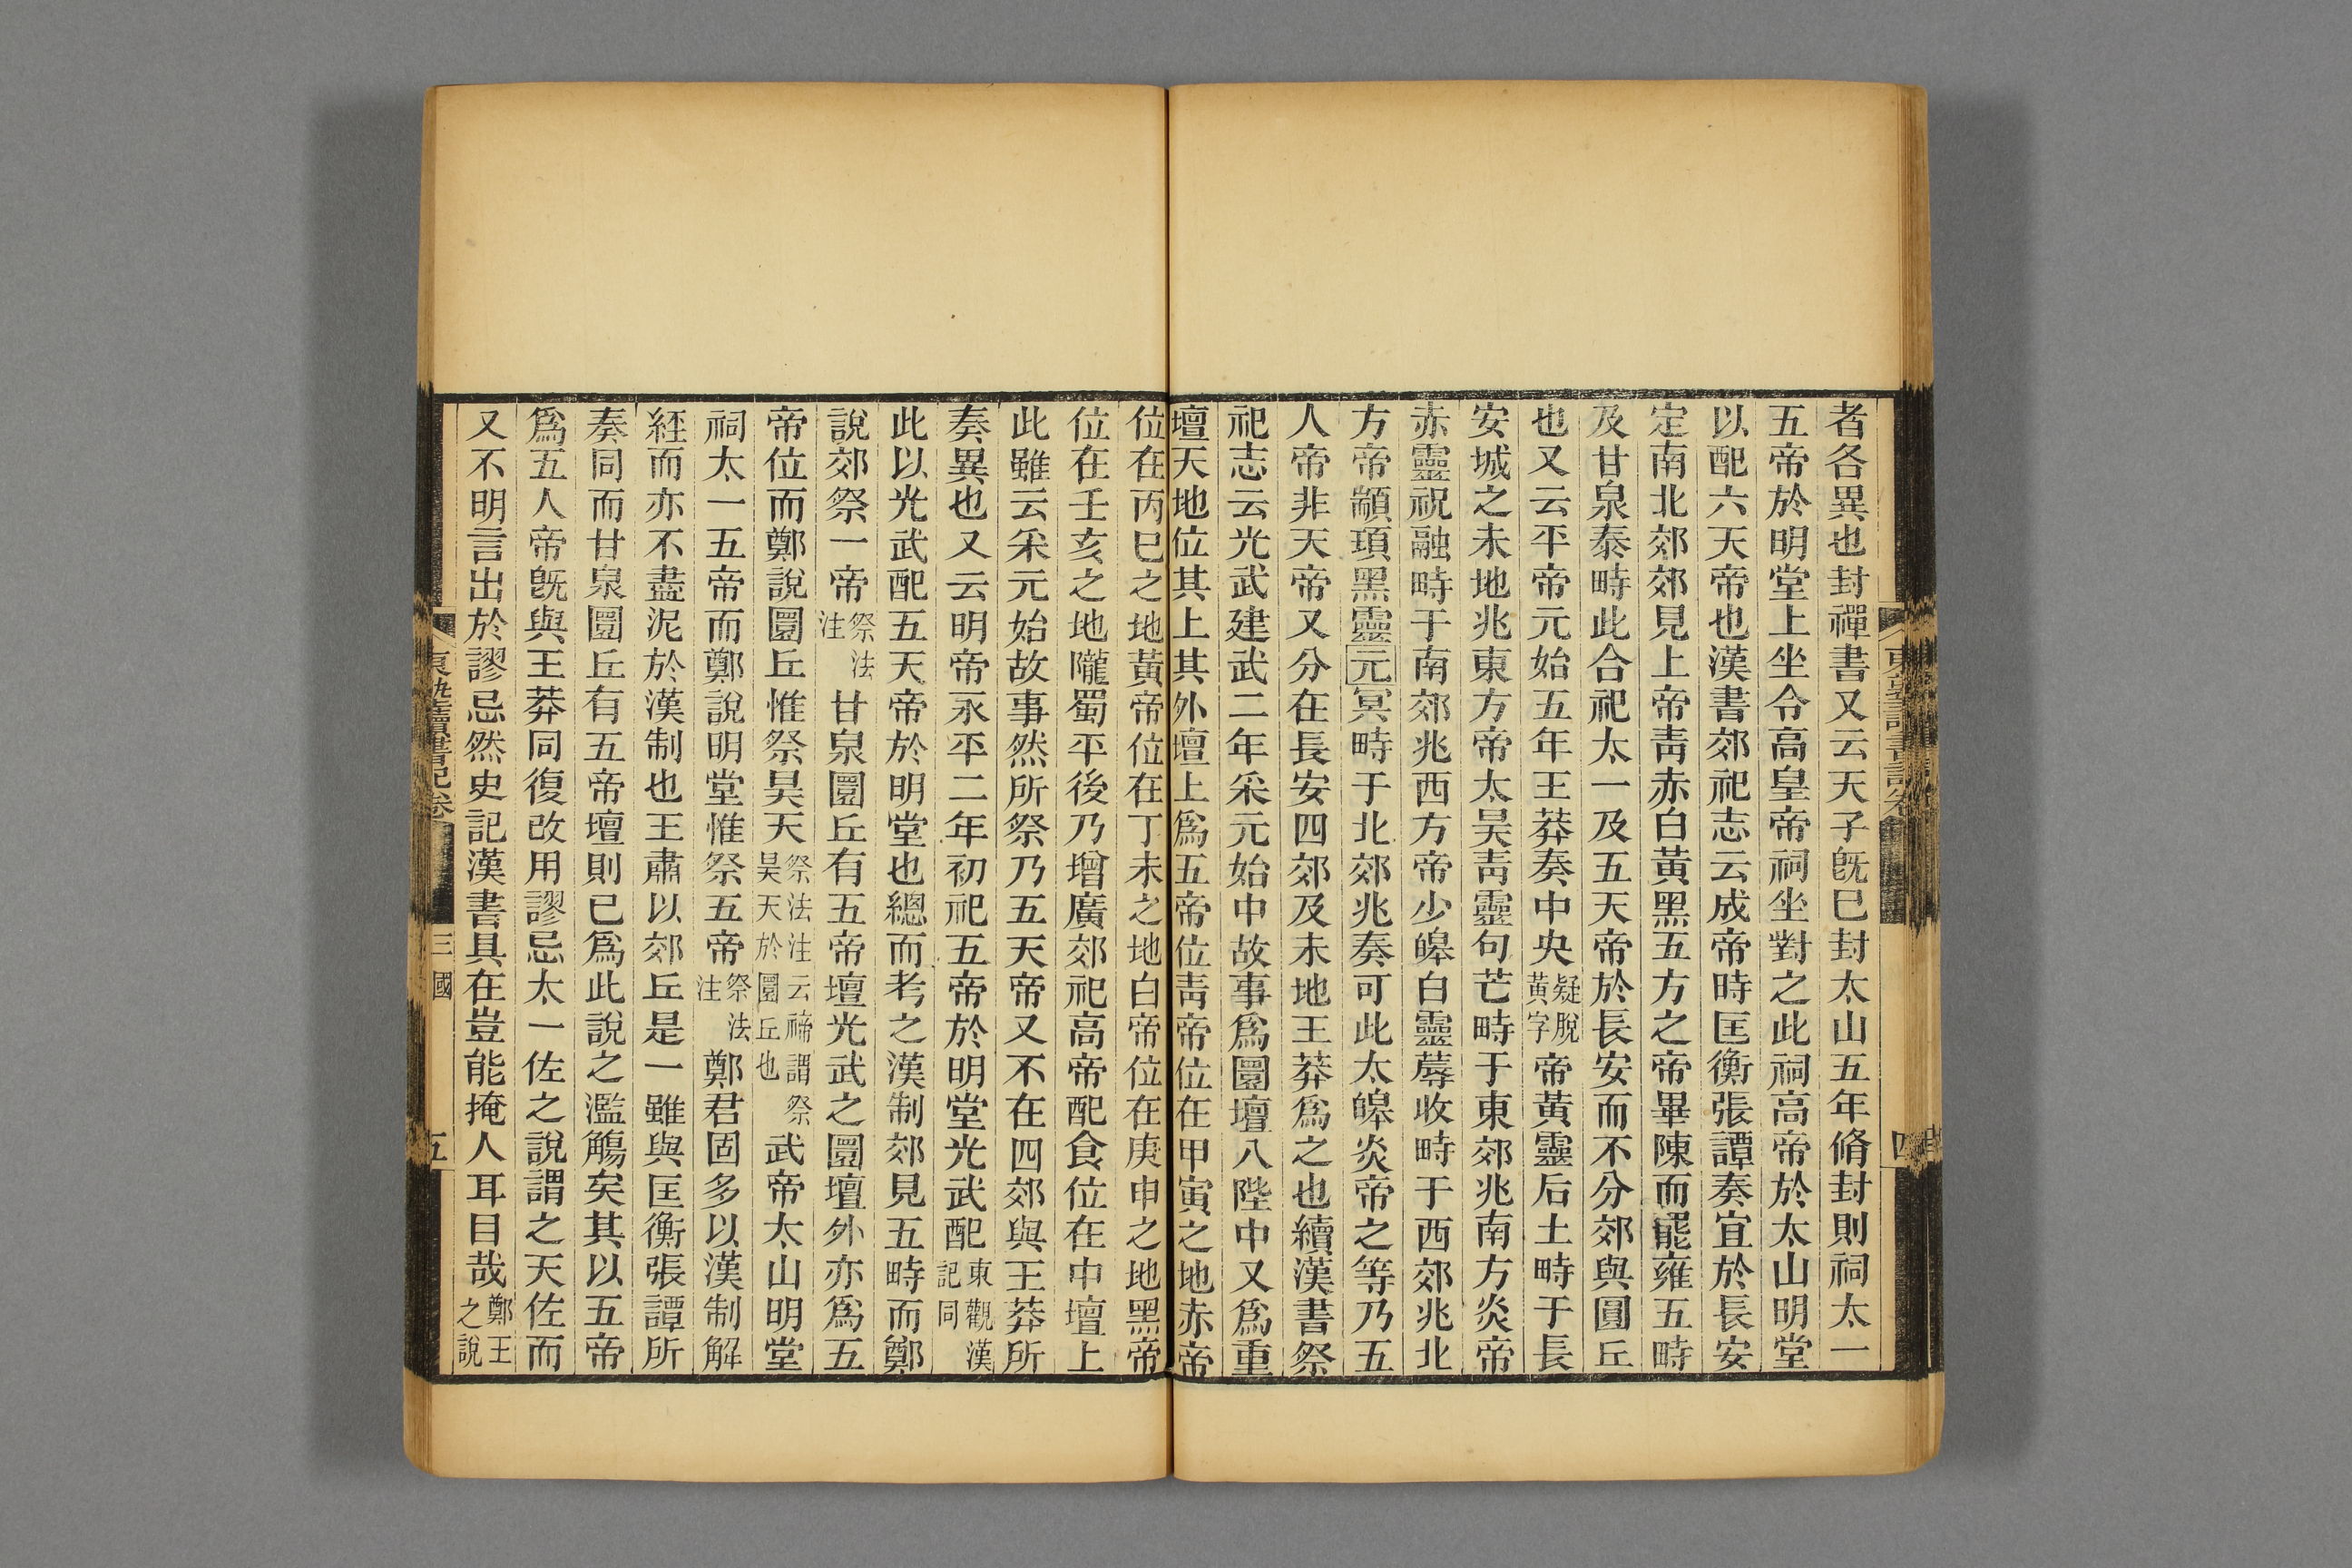 者各異也封禪書又云天子旣巳封太山五年脩封則祠太一
五帝於明堂上坐令高皇帝祠坐對之此祠高帝於太山明堂
以配六天帝也漢書郊祀志云成帝時匡衡張譚奏宜於長安
定南北郊郊見上帝靑赤白黃黑五方之帝畢陳而罷雍五畤
及甘泉泰畤此合祀太一及五天帝於長安而不分郊與圓丘
也又云平帝元始五年王莽奏中央疑脫黃字帝黃靈后土畤于長
安城之未地兆東方帝太昊靑靈句芒畤于東郊兆南方炎帝
赤靈祝融畤于南郊兆西方帝少皞白靈蓐收畤于西郊兆北
方帝顓頊黑靈元冥畤于北郊兆奏可此太皞炎帝之等乃五
人帝非天帝又分在長安四郊及未地王莽爲之也續漢書祭
祀志云光武建武二年采元始中故事爲圜壇八陛中又爲重
壇天地位其上其外壇上爲五帝位靑帝位在甲寅之地赤帝
位在丙巳之地黃帝位在丁未之地白帝位在庚申之地黑帝
位在壬亥之地隴蜀平後乃增廣郊祀高帝配食位在中壇上
此雖云采元始故事然所祭乃五天帝又不在四郊與王莽所
奏異也又云明帝永平二年初祀五帝於明堂光武配東觀漢記同
此以光武配五天帝於明堂也總而考之漢制郊見五畤而鄭
說郊祭一帝祭法注甘泉圜丘有五帝壇光武之圜壇外亦爲五
帝位而鄭說圜丘惟祭昊天祭法注云禘謂祭昊天於圜丘也武帝太山明堂
祠太一五帝而鄭說明堂惟祭五帝祭法注鄭君固多以漢制解
經而亦不盡泥於漢制也王肅以郊丘是一雖與匡衡張譚所
奏同而甘泉圜丘有五帝壇則已爲此說之濫觴矣其以五帝
爲五人帝旣與王莽同復改用謬忌太一佐之說謂之天佐而
又不明言出於謬忌然史記漢書具在豈能掩人耳目哉鄭王之說
東塾讀書記卷
三國
五